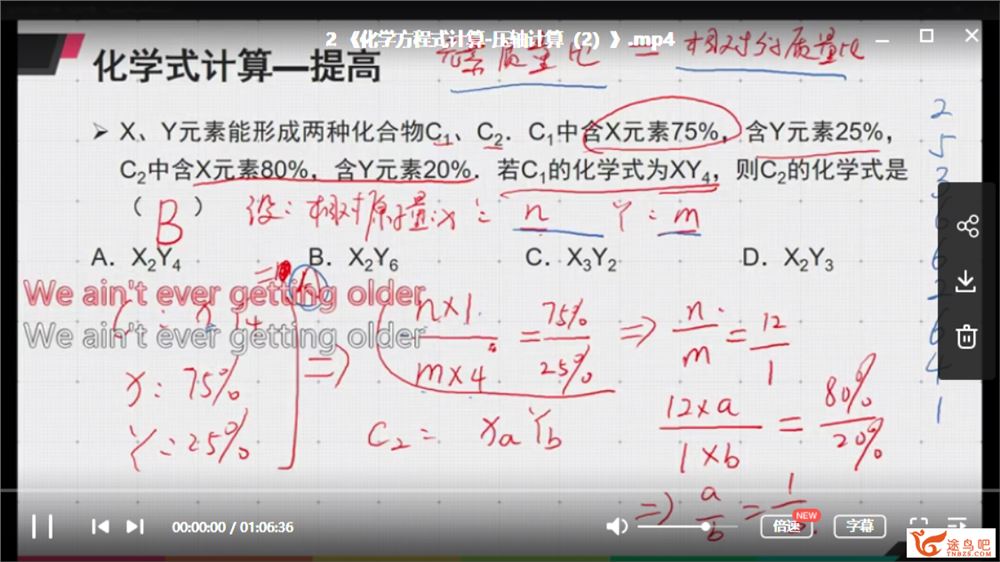 2 《化学方程式计算-压轴计算（2）》.mp4
化学式计算—提高
元素质量比 = 相对分质量比
X、Y元素能形成两种化合物C₁、C₂．C₁中含X元素75%，含Y元素25%，
C₂中含X元素80%，含Y元素20%．若C₁的化学式为XY₄，则C₂的化学式是
（ B ）
设：相对原子量：X：n Y：m
A．X₂Y₄ B．X₂Y₆ C．X₃Y₂ D．X₂Y₃
We ain't ever getting older
We ain't ever getting older
X：75%
Y=25%
⇒ n×1 / m×4 = 75% / 25% ⇒ n / m = 12 / 1
C₂ = XaYb
12×a / 1×b = 80% / 20%
⇒ a / b = 1
2
5
3
6
6
2
6
4
1
00:00:00 / 01:06:36
倍速
NEW
字幕
途鸟吧
TNBZS.COM